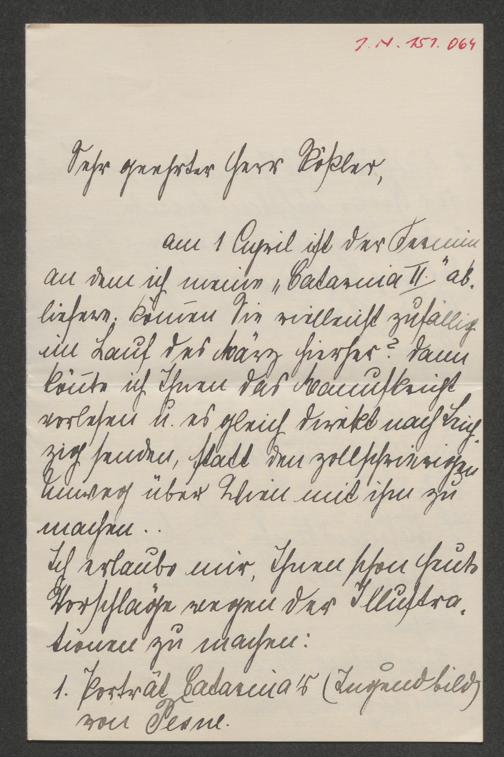 J. N. 151. 064
Sehr geehrter Herr Rößler,
am 1 April ist der Termin
an dem ich meine „Catarina II" ab-
liefere. Können Sie vielleicht zufällig
im Lauf des März hierher? Dann
könnte ich Ihnen das Manuskript
vorlesen u. es gleich direkt nach Leip-
zig senden, statt den zollschwierigen
Umweg über Wien mit ihm zu
machen..
Ich erlaube mir, Ihnen schon heute
Vorschläge wegen der Illustra-
tionen zu machen:
1. Porträt Catarina's (Jugendbild)
von Pesne.